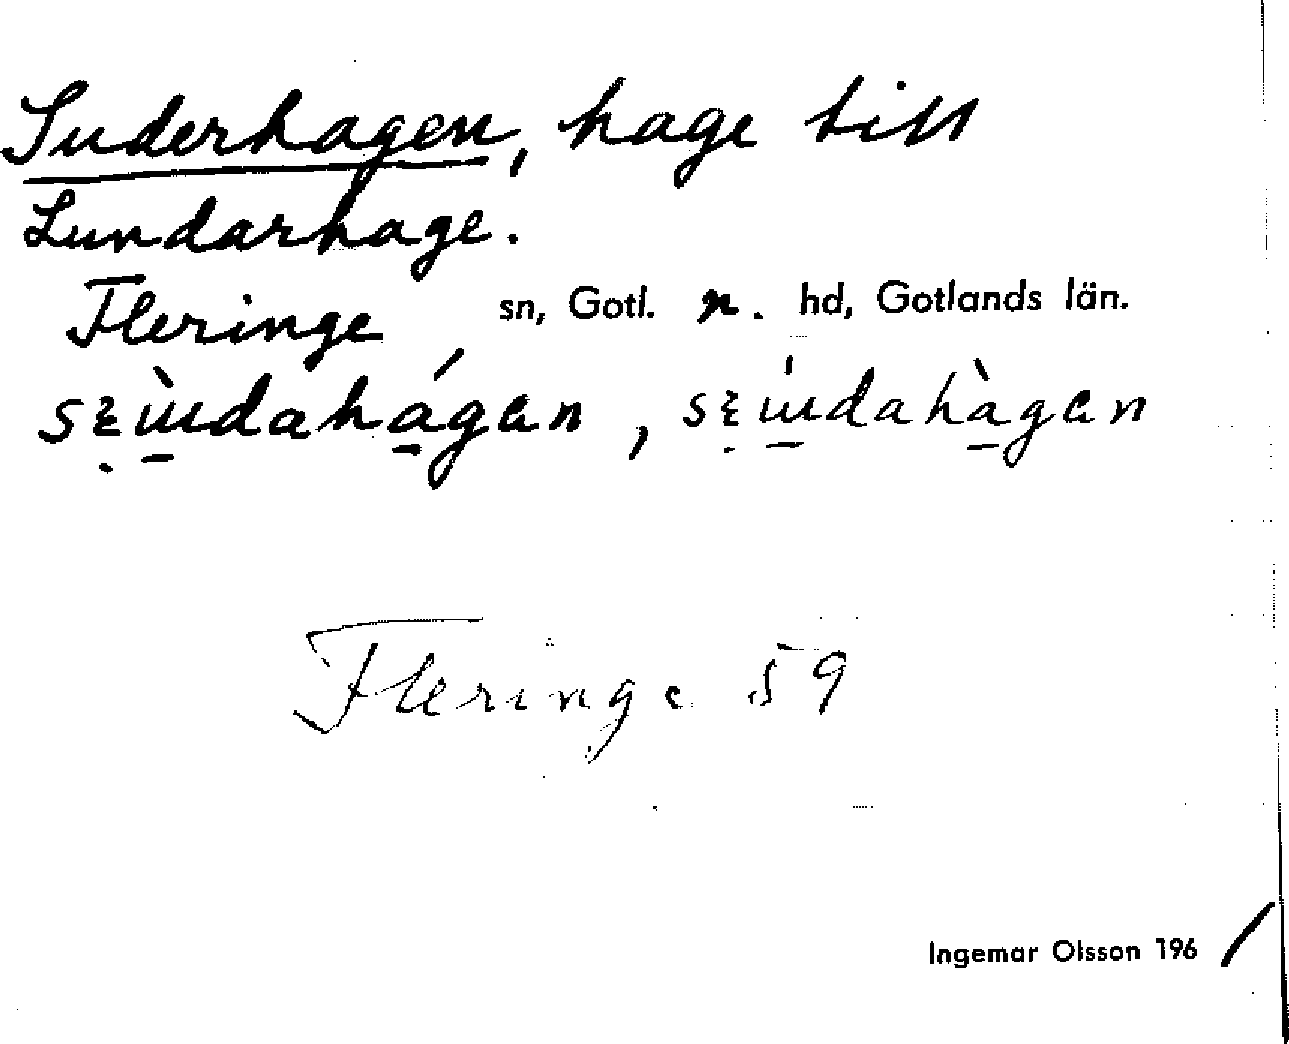 Suderhagen, hage till
Lundarhage.
Fleringe sn, Gotl. n. hd, Gotlands län.
Fleringe 59
Ingemar Olsson 1961